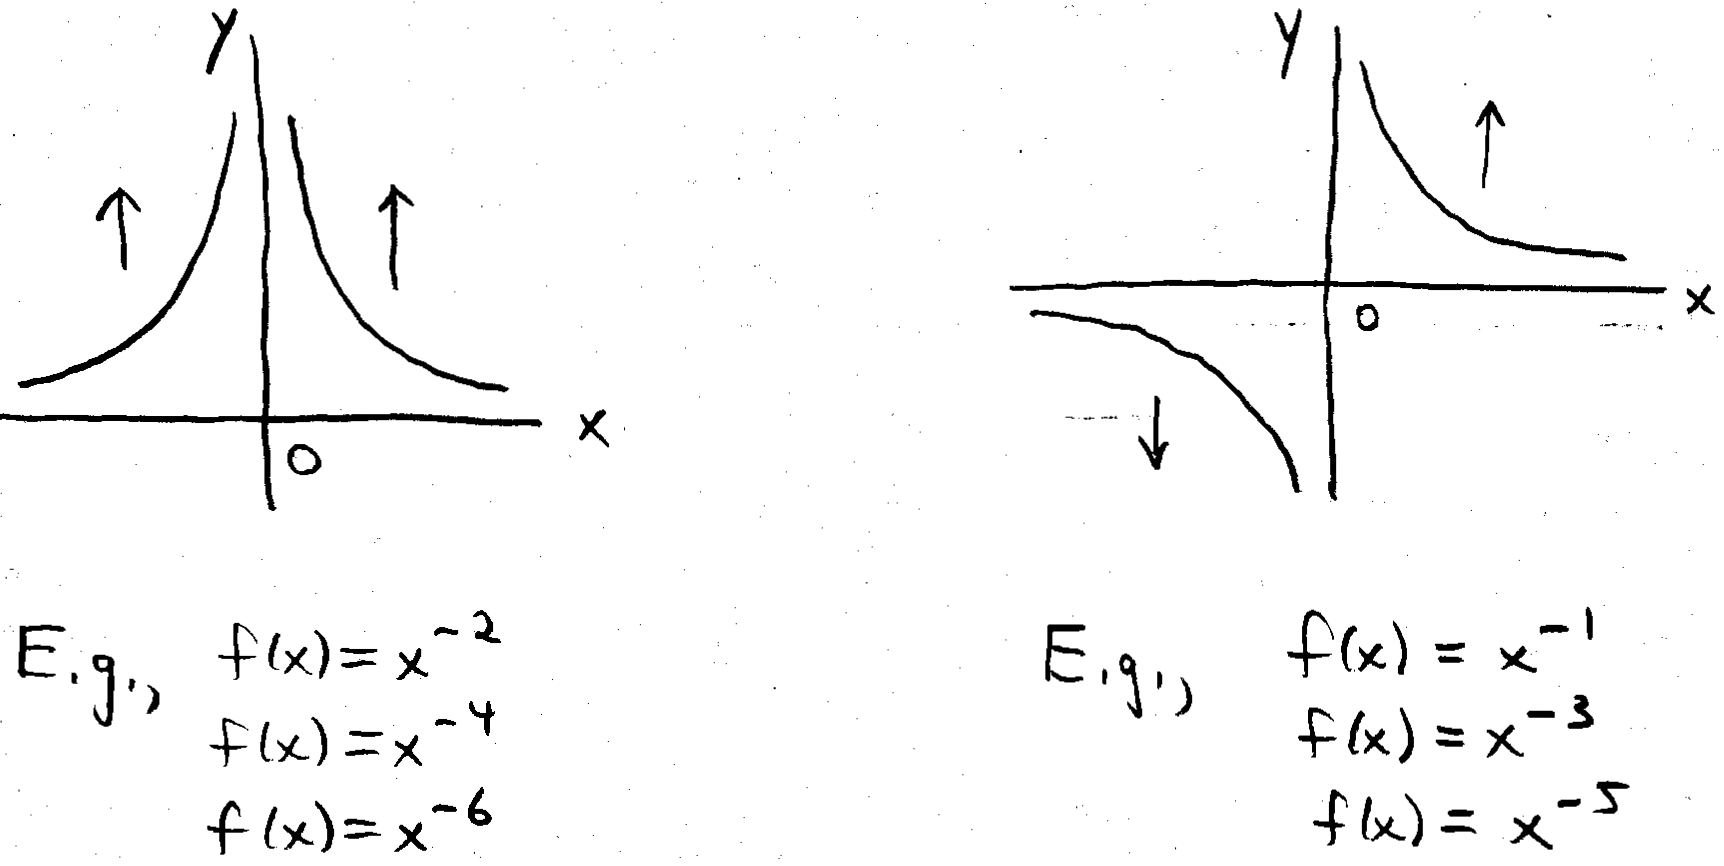 y
x
0
E.g., f(x) = x^-2
f(x) = x^-4
f(x) = x^-6
y
x
0
E.g., f(x) = x^-1
f(x) = x^-3
f(x) = x^-5